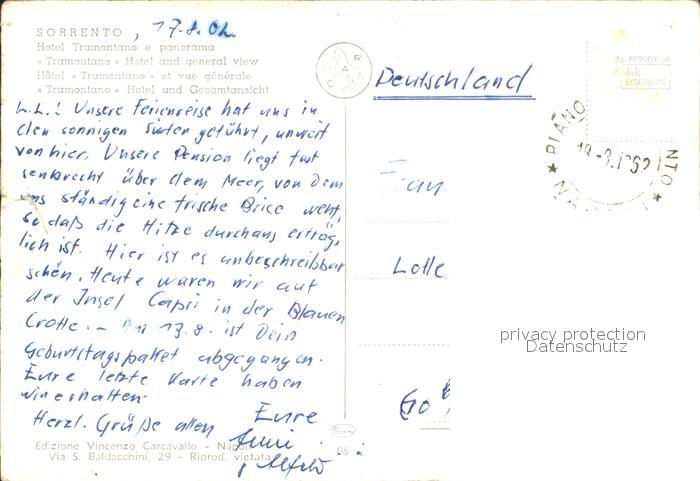 SORRENTO, 17.8.62
Hotel Tramontano e panorama
« Tramontano » Hotel and general view
Hôtel « Tramontano » et vue générale
« Tramontano » Hotel und Gesamtansicht
L.L.! Unsere Ferienreise hat uns in
den sonnigen Süden geführt, unweit
von hier. Unsere Pension liegt fast
senkrecht über dem Meer, von dem
uns ständig eine frische Brise weht,
so daß die Hitze durchaus erträg-
lich ist. Hier ist es unbeschreibbar
schön. Heute waren wir auf
der Insel Capri in der Blauen
Grotte. – Am 13.8. ist Dein
Geburtstagspaket abgegangen.
Eure letzte Karte haben
wir erhalten.
Herzl. Grüße allen Eure
Alfred
Edizione Vincenzo Carcavallo - Napoli
Via S. Baldacchini, 29 - Riprod. vietata
05
C A R
Deutschland
Frau
Lotte
Go
FOTOCOLOR
Kodak
EKTACHROME
PIANO NTO
privacy protection
Datenschutz